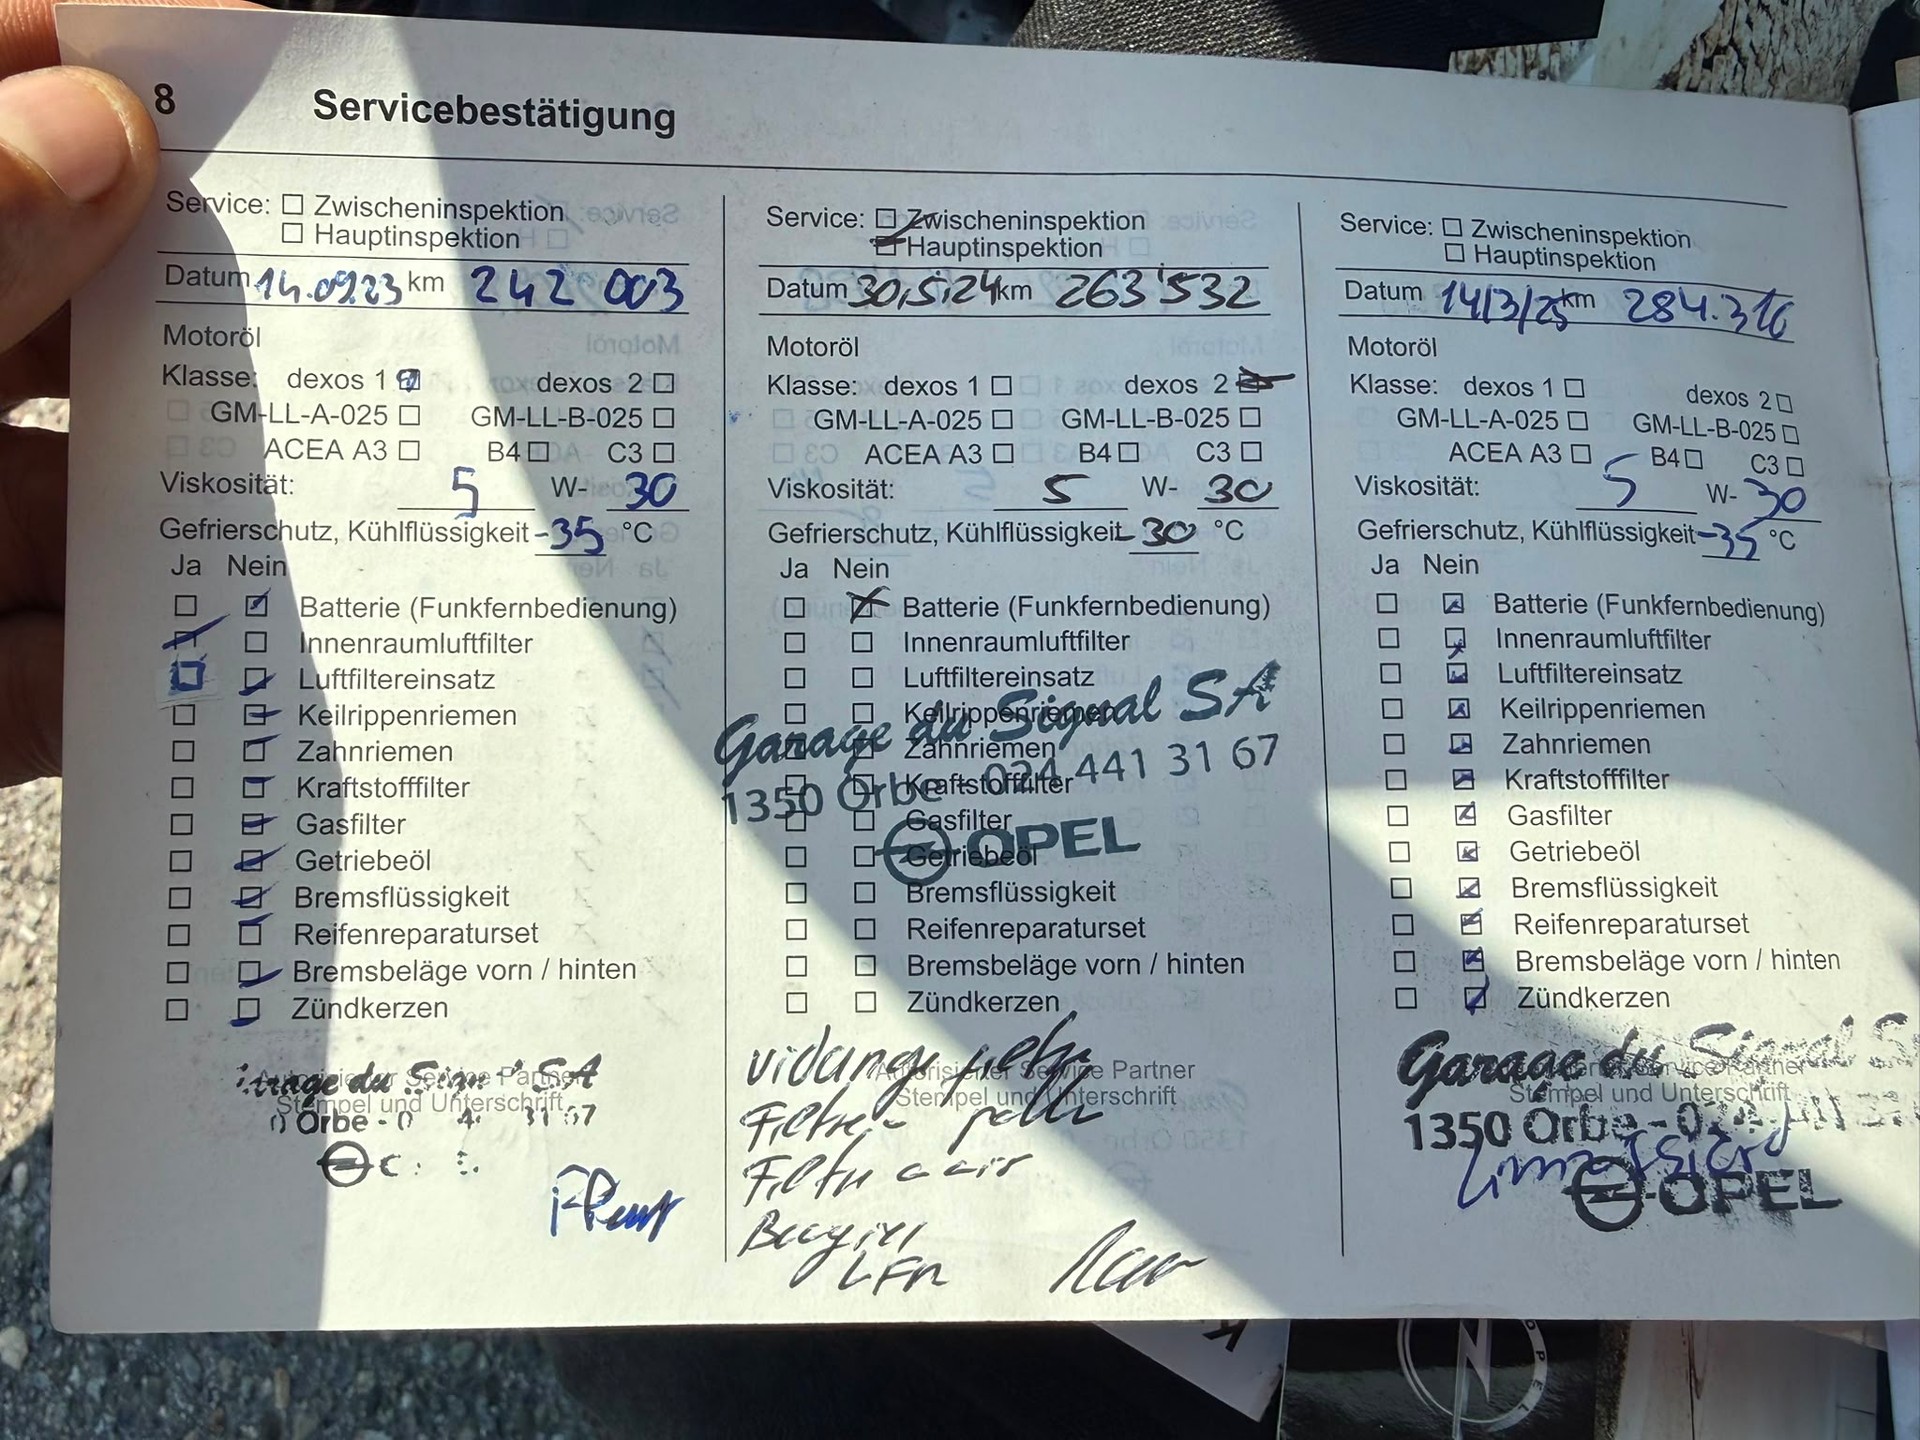 8 Servicebestätigung
Service: Zwischeninspektion
Hauptinspektion
Datum 14.09.23 km 242 003
Motoröl
Klasse: dexos 1 dexos 2
GM-LL-A-025 GM-LL-B-025
ACEA A3 B4 C3
Viskosität: 5 W- 30
Gefrierschutz, Kühlflüssigkeit -35 °C
Ja Nein
Batterie (Funkfernbedienung)
Innenraumluftfilter
Luftfiltereinsatz
Keilrippenriemen
Zahnriemen
Kraftstofffilter
Gasfilter
Getriebeöl
Bremsflüssigkeit
Reifenreparaturset
Bremsbeläge vorn / hinten
Zündkerzen
Autorisierter Service Partner
Stempel und Unterschrift
du SA
Orbe -
Service: Zwischeninspektion
Hauptinspektion
Datum 30.5.24 km 263'532
Motoröl
Klasse: dexos 1 dexos 2
GM-LL-A-025 GM-LL-B-025
ACEA A3 B4 C3
Viskosität: 5 W- 30
Gefrierschutz, Kühlflüssigkeit -30 °C
Ja Nein
Batterie (Funkfernbedienung)
Innenraumluftfilter
Luftfiltereinsatz
Keilrippenriemen
Zahnriemen
Kraftstofffilter
Gasfilter
Getriebeöl
Bremsflüssigkeit
Reifenreparaturset
Bremsbeläge vorn / hinten
Zündkerzen
Garage du Signal SA
1350 Orbe - 024 441 31 67
OPEL
Autorisierter Service Partner
Stempel und Unterschrift
vidange
Service: Zwischeninspektion
Hauptinspektion
Datum 14/3/25 km 284.316
Motoröl
Klasse: dexos 1 dexos 2
GM-LL-A-025 GM-LL-B-025
ACEA A3 B4 C3
Viskosität: 5 W- 30
Gefrierschutz, Kühlflüssigkeit -35 °C
Ja Nein
Batterie (Funkfernbedienung)
Innenraumluftfilter
Luftfiltereinsatz
Keilrippenriemen
Zahnriemen
Kraftstofffilter
Gasfilter
Getriebeöl
Bremsflüssigkeit
Reifenreparaturset
Bremsbeläge vorn / hinten
Zündkerzen
Service Partner
Stempel und Unterschrift
Garage du Signal
1350 Orbe -
OPEL